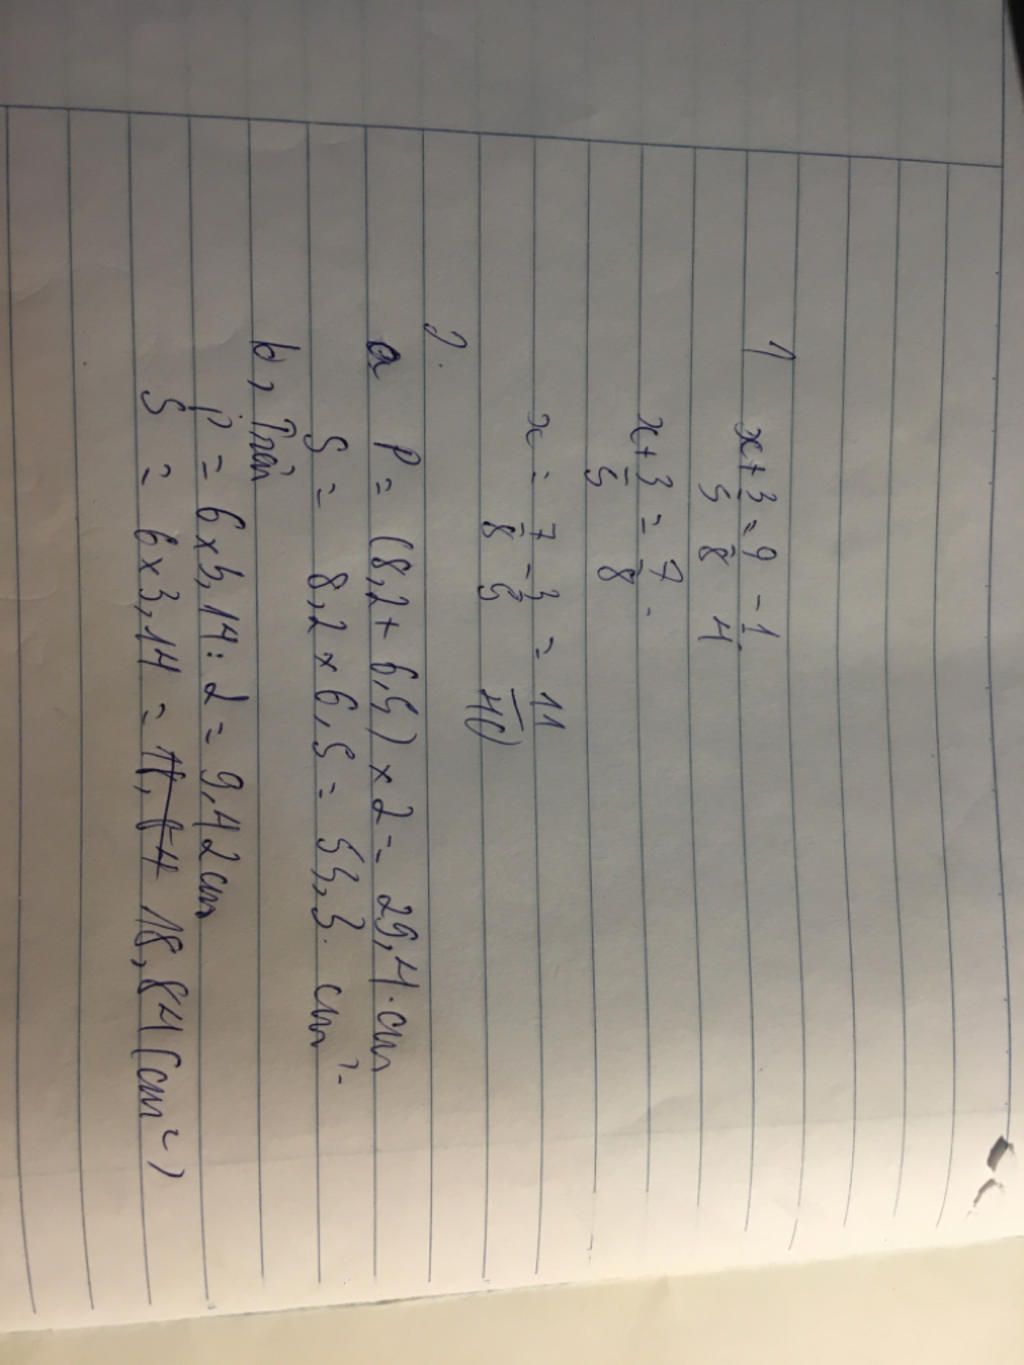 1
x + 3/5 = 9/8 - 1/4
x + 3/5 = 7/8
x = 7/8 - 3/5 = 11/40
2.
a P = (8,2 + 6,5) x 2 = 29,4 cm
S = 8,2 x 6,5 = 53,3 cm²
b, Tròn
P = 6 x 3,14 : 2 = 9,42 cm
S = 6 x 3,14 = 18,84 (cm²)